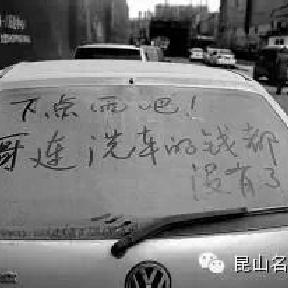 下点雨吧！
哥连洗车的钱都
没有了
昆山名